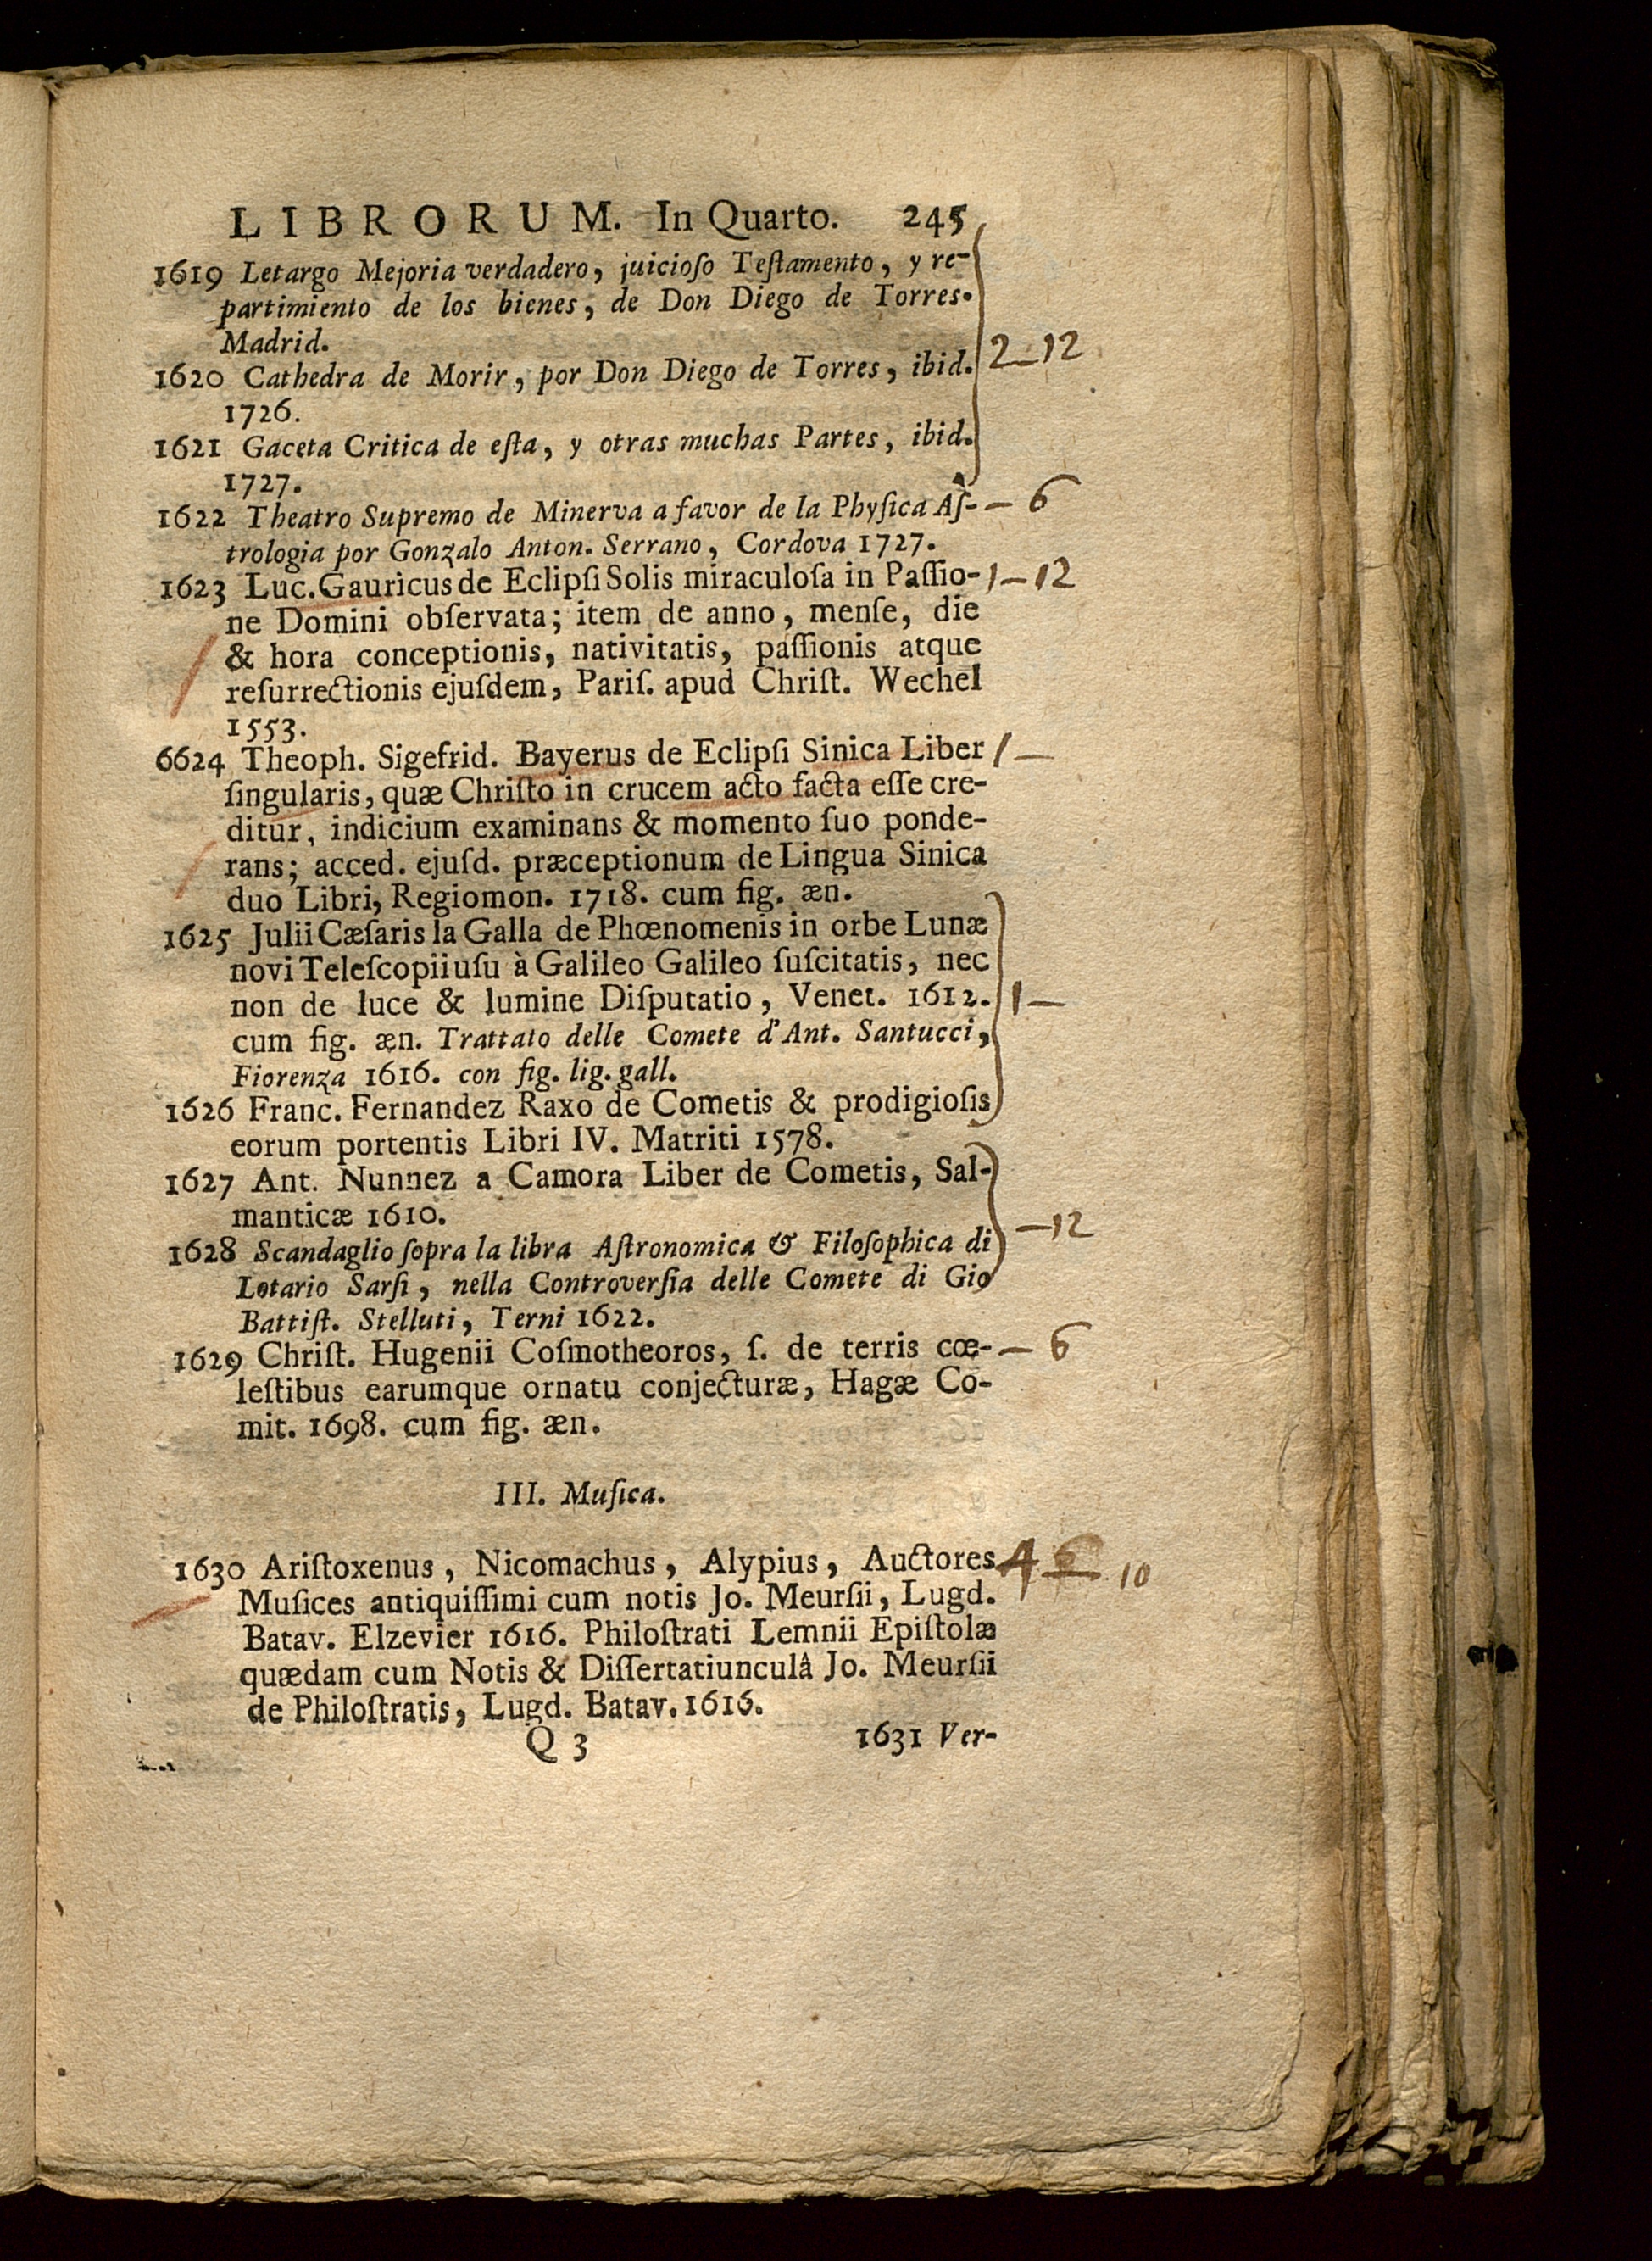 LIBRORUM. In Quarto. 245
1619 Letargo Mejoria verdadero, juicioſo Teſtamento, y re-
partimiento de los bienes, de Don Diego de Torres.
Madrid.
1620 Cathedra de Morir, por Don Diego de Torres, ibid. 2—12
1726.
1621 Gaceta Critica de eſta, y otras muchas Partes, ibid.
1727.
1622 Theatro Supremo de Minerva a favor de la Phyſica Aſ- — 6
trologia por Gonzalo Anton. Serrano, Cordova 1727.
1623 Luc. Gauricus de Eclipſi Solis miraculoſa in Paſſio- 1—12
ne Domini obſervata; item de anno, menſe, die
& hora conceptionis, nativitatis, paſſionis atque
reſurrectionis ejuſdem, Pariſ. apud Chriſt. Wechel
1553.
6624 Theoph. Sigefrid. Bayerus de Eclipſi Sinica Liber 1—
ſingularis, quæ Chriſto in crucem acto facta eſſe cre-
ditur, indicium examinans & momento ſuo ponde-
rans; acced. ejuſd. præceptionum de Lingua Sinica
duo Libri, Regiomon. 1718. cum fig. æn.
1625 Julii Cæſaris la Galla de Phœnomenis in orbe Lunæ
novi Teleſcopii uſu à Galileo Galileo ſuſcitatis, nec
non de luce & lumine Diſputatio, Venet. 1612. 1—
cum fig. æn. Trattato delle Comete d'Ant. Santucci,
Fiorenza 1616. con fig. lig. gall.
1626 Franc. Fernandez Raxo de Cometis & prodigioſis
eorum portentis Libri IV. Matriti 1578.
1627 Ant. Nunnez a Camora Liber de Cometis, Sal-
manticæ 1610. —12
1628 Scandaglio ſopra la libra Aſtronomica & Filoſophica di
Lotario Sarſi, nella Controverſia delle Comete di Gio
Battiſt. Stelluti, Terni 1622.
1629 Chriſt. Hugenii Coſmotheoros, ſ. de terris cœ- — 6
leſtibus earumque ornatu conjecturæ, Hagæ Co-
mit. 1698. cum fig. æn.
III. Muſica.
1630 Ariſtoxenus, Nicomachus, Alypius, Auctores 4 10
Muſices antiquiſſimi cum notis Jo. Meurſii, Lugd.
Batav. Elzevier 1616. Philoſtrati Lemnii Epiſtolæ
quædam cum Notis & Diſſertatiunculâ Jo. Meurſii
de Philoſtratis, Lugd. Batav. 1616.
Q 3 1631 Ver-